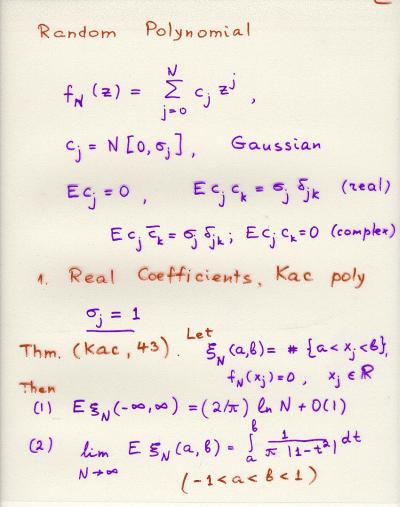 Random Polynomial
f_N(z) = Σ_{j=0}^{N} c_j z^j ,
c_j = N[0, σ_j], Gaussian
E c_j = 0, E c_j c_k = σ_j δ_jk (real)
E c_j c̄_k = σ_j δ_jk ; E c_j c_k = 0 (complex)
1. Real Coefficients, Kac poly
σ_j = 1
Thm. (Kac, 43). Let ξ_N(a,b) = # {a < x_j < b},
f_N(x_j) = 0, x_j ∈ ℝ
Then
(1) E ξ_N(-∞,∞) = (2/π) ln N + O(1)
(2) lim_{N→∞} E ξ_N(a,b) = ∫_a^b 1/(π |1-t²|) dt
(-1 < a < b < 1)